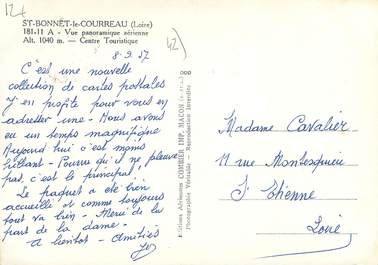 124
ST-BONNET-le-COURREAU (Loire)
181-11 A - Vue panoramique aérienne
Alt. 1040 m. — Centre Touristique
42)
8.9.57
C'est une nouvelle
collection de cartes postales
J'en profite pour vous en
adresser une - Nous avons
eu un temps magnifique
Aujourd'hui c'est moins
brillant - Pourvu qu'il ne pleuve
pas, c'est le principal,
Le paquet a été bien
accueilli et comme toujours
tout va bien - Merci de la
part de la dame -
A bientôt - Amitiés
Editions Aériennes COMBIER IMP. MACON
Photographie Véritable - Reproduction Interdite
Madame Cavalier
11 rue Montesquieu
St Etienne
Loire